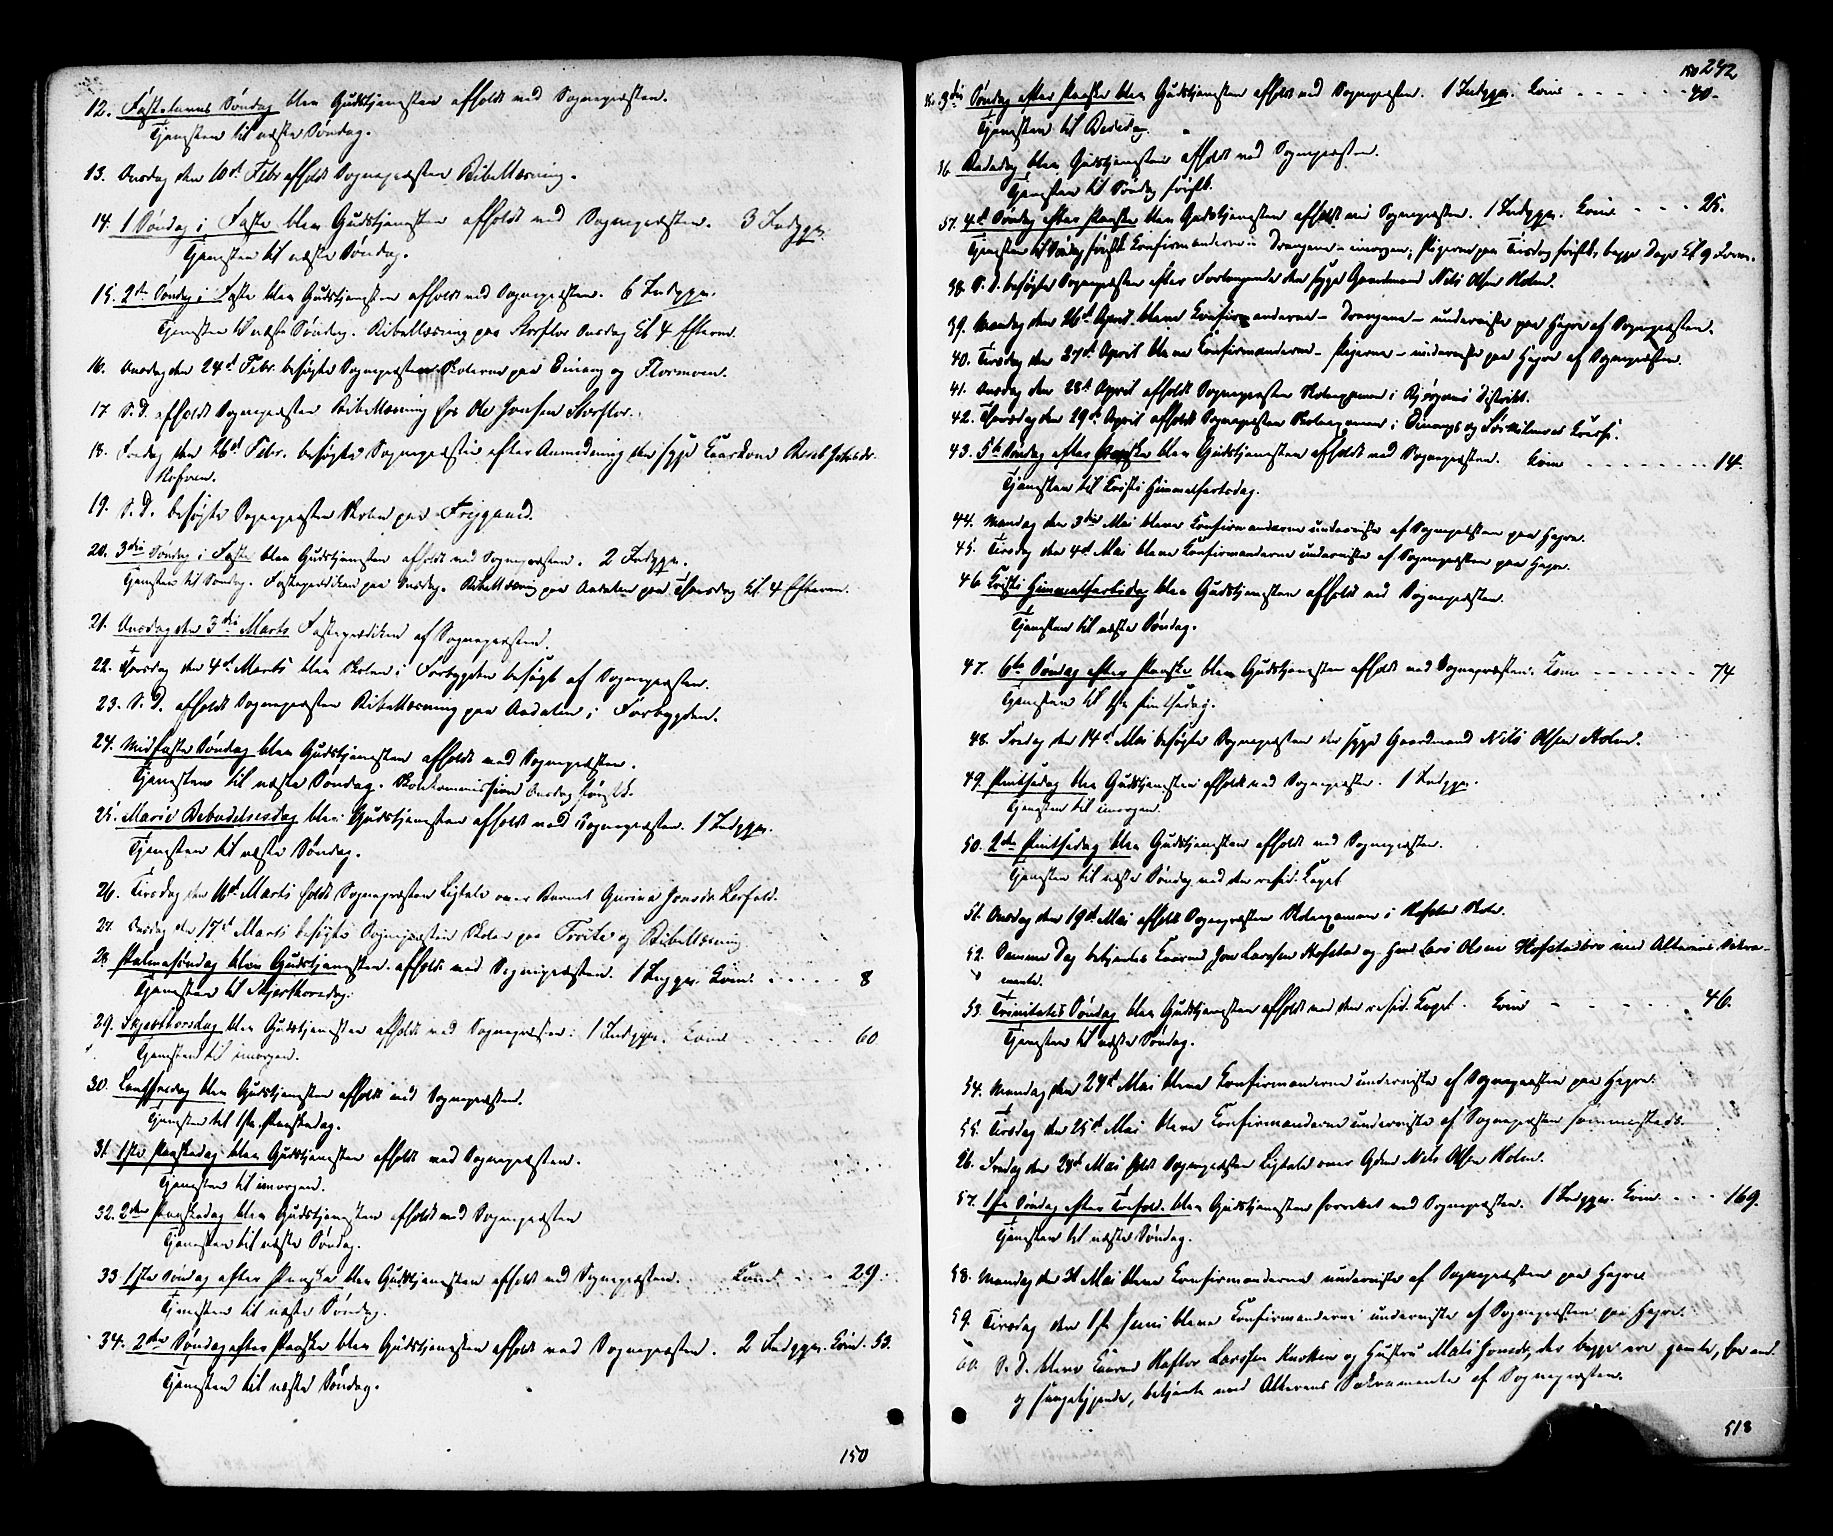 12. Fastelavns Søndag blev Gudstjenesten afholdt ved Sognepræsten.
Tjenesten til næste Søndag.
13. Onsdag den 10de Febr afholdt Sognepræsten Bibellæsning.
14. 1 Søndag i Faste blev Gudstjenesten afholdt ved Sognepræsten. 3 Indggr.
Tjenesten til næste Søndag.
15. 2den Søndag i Faste blev Gudstjenesten afholdt ved Sognepræsten. 6 Indggr.
Tjenesten til næste Søndag. Bibellæsning paa Storflor Onsdag Kl 4 Efterm.
16. Onsdag den 24de Febr. besøgte Sognepræsten Skolerne paa Einang og Flormoen.
17. S. D. afholdt Sognepræsten Bibellæsning hos Ole Jonsen Storflor.
18. Fredag den 26de Febr. besøgte Sognepræsten efter Anmodning den syge Kaarkone Beret
19. S. D. besøgte Sognepræsten Skolen paa
20. 3die Søndag i Faste blev Gudstjenesten afholdt ved Sognepræsten. 2 Indggr.
Tjenesten til Søndag. Fasteprædiken paa Onsdag. Bibellæsning paa Aadalen paa Thorsdag Kl. 4 Efterm.
21. Onsdag den 3die Marts Fasteprædiken af Sognepræsten.
22. Thorsdag den 4de Marts blev Skolen i Forbygden besøgt af Sognepræsten.
23. S. D. afholdt Sognepræsten Bibellæsning paa Aadalen i Forbygden.
24. Midfaste Søndag blev Gudstjenesten afholdt ved Sognepræsten.
Tjenesten til næste Søndag. Skolekommission Onsdag førstk.
25. Mariæ Bebudelsesdag blev Gudstjenesten afholdt ved Sognepræsten. 1 Indggr.
Tjenesten til næste Søndag.
26. Tirsdag den 16de Marts holdt Sognepræsten Ligtale over Barnet Gurine Jonsdr.
27. Onsdag den 17de Marts besøgte Sognepræsten Skolen paa og Bibellæsning
28. Palmesøndag blev Gudstjenesten afholdt ved Sognepræsten. 1 Indggr. Com. 8
Tjenesten til Skjærthorsdag.
29. Skjærthorsdag blev Gudstjenesten afholdt ved Sognepræsten. 1 Indggr. Com. 60
Tjenesten til imorgen.
30. Langfredag blev Gudstjenesten afholdt ved Sognepræsten.
Tjenesten til 1ste Paaskedag.
31. 1ste Paaskedag blev Gudstjenesten afholdt ved Sognepræsten.
Tjenesten til imorgen.
32. 2den Paaskedag blev Gudstjenesten afholdt ved Sognepræsten
Tjenesten til næste Søndag.
33 1ste Søndag efter Paaske blev Gudstjenesten afholdt ved Sognepræsten. Com. 29.
Tjenesten til næste Søndag.
34. 2den Søndag efter Paaske blev Gudstjenesten afholdt ved Sognepræsten. 2 Indggr. Com. 53.
Tjenesten til næste Søndag.
150
150 292
3die Søndag efter Paaske blev Gudstjenesten afholdt ved Sognepræsten. 1 Indggr. Com. 40.
Tjenesten til Bededag.
36. Bededag blev Gudstjenesten afholdt ved Sognepræsten.
Tjenesten til Søndag førstk.
37. 4de Søndag efter Paaske blev Gudstjenesten afholdt ved Sognepræsten. 1 Indggr. Com. 25.
Tjenesten til Søndag førstk Konfirmanderne - Drengene - imorgen; Pigerne paa Tirsdag førstk, begge Dage Kl 9 Form.
38. S. D. besøgte Sognepræsten efter Forlangende den syge Gaardmand Nils Olsen Holm.
39. Mandag den 26de April bleve Konfirmanderne - Drengene - underviste paa Hegre af Sognepræsten.
40. Tirsdag den 27de April bleve Konfirmanderne - Pigerne - underviste paa Hegre af Sognepræsten.
41. Onsdag den 28de April afholdt Sognepræsten Skoleexamen i Bjørgens Distrikt.
42. Thorsdag den 29de April afholdt Sognepræsten Skoleexamen i Einangs og Kreds.
43. 5te Søndag efter Paaske blev Gudstjenesten afholdt ved Sognepræsten. Com 14.
Tjenesten til Kristi Himmelfartsdag.
44. Mandag den 3die Mai bleve Konfirmanderne underviste af Sognepræsten paa Hegre.
45. Tirsdag den 4de Mai bleve Konfirmanderne underviste af Sognepræsten paa Hegre.
46. Kristi Himmelfartsdag blev Gudstjenesten afholdt ved Sognepræsten.
Tjenesten til næste Søndag.
47. 6te Søndag efter Paaske blev Gudstjenesten afholdt ved Sognepræsten. Com. 74
Tjenesten til 1ste Pintsedag.
48. Fredag den 14de Mai besøgte Sognepræsten den syge Gaardmand Nils Olsen Holm.
49. Pintsedag blev Gudstjenesten afholdt ved Sognepræsten. 1 Indggr.
Tjenesten til imorgen.
50. 2den Pintsedag blev Gudstjenesten afholdt ved Sognepræsten.
Tjenesten til næste Søndag ved den resid. Kapel
51. Onsdag den 19de Mai afholdt Sognepræsten Skoleexamen i Hofstad Skole.
52. Samme Dag betjentes Kaarmd Jon Larssen Hofstad og Lars Olsen Hofstadbro med Alterens Sakra-
mente.
53. Trinitatis Søndag blev Gudstjenesten afholdt ved den resid. Kapel. Com 46.
Tjenesten til næste Søndag.
54. Mandag den 24de Mai bleve Konfirmanderne underviste af Sognepræsten paa Hegre.
55. Tirsdag den 25de Mai bleve Konfirmanderne underviste af Sognepræsten sammesteds.
56. Fredag den 28de Mai holdt Sognepræsten Ligtale over Gdmd Nils Olsen Holm.
57. 1ste Søndag efter Trefold. blev Gudstjenesten forrettet ved Sognepræsten. 1 Indggr. Com. 169.
Tjenesten til næste Søndag.
58. Mandag den 31 Mai bleve Konfirmanderne underviste af Sognepræsten paa Hegre
59. Tirsdag den 1ste Juni bleve Konfirmanderne underviste af Sognepræsten paa Hegre.
60. S. D. bleve Kaarmd Haftor Larssen og Hustru Mali Jonsdr, der begge ere gamle,
og sengeliggende, betjente med Alterens Sakramente af Sognepræsten.
513